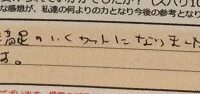 な感想が、私達の何よりの力となり今後の参考とな
満足のいくカットになりました
す。